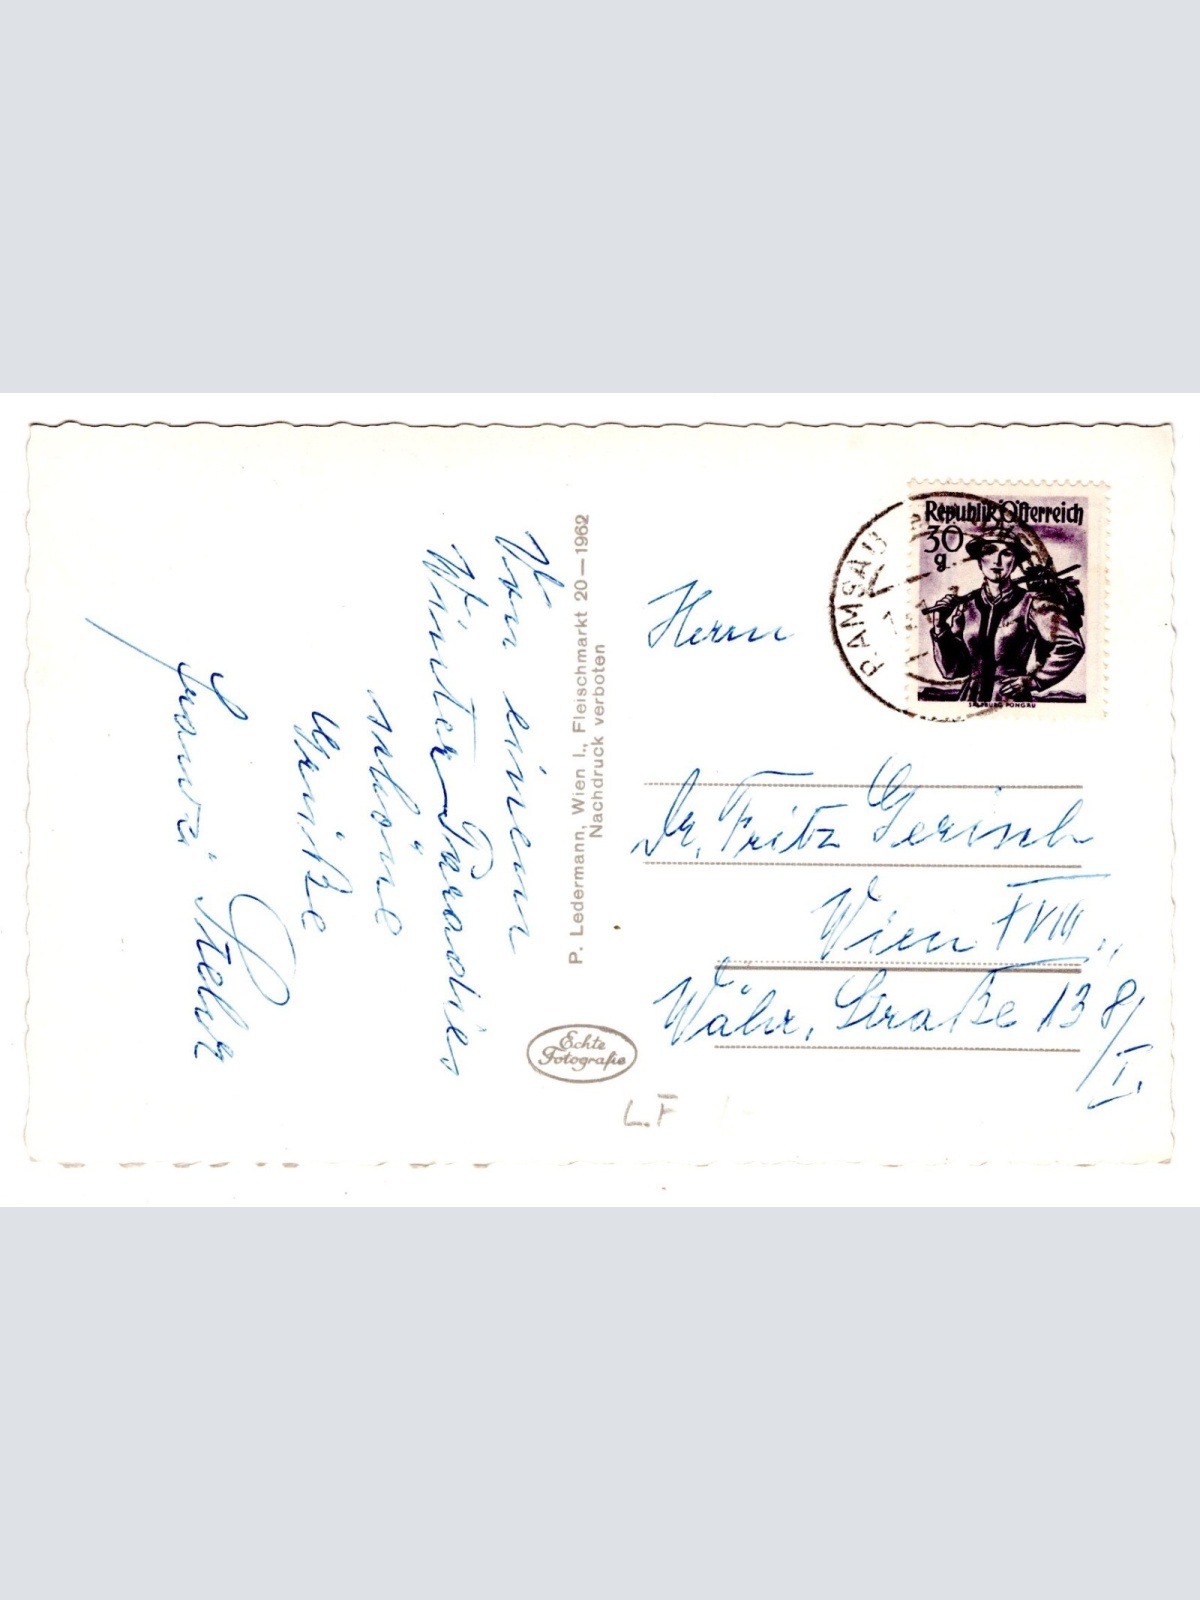 Von einem
Winter-Paradies
schöne
Grüße
P. Ledermann, Wien I., Fleischmarkt 20—1962
Nachdruck verboten
Echte
Fotografie
L.F
RAMSAU
Republik Österreich
30
g.
SALZBURG PONGAU
Herrn
Dr. Fritz Gerisch
Wien XVIII.,
Währ. Straße 138/
I.